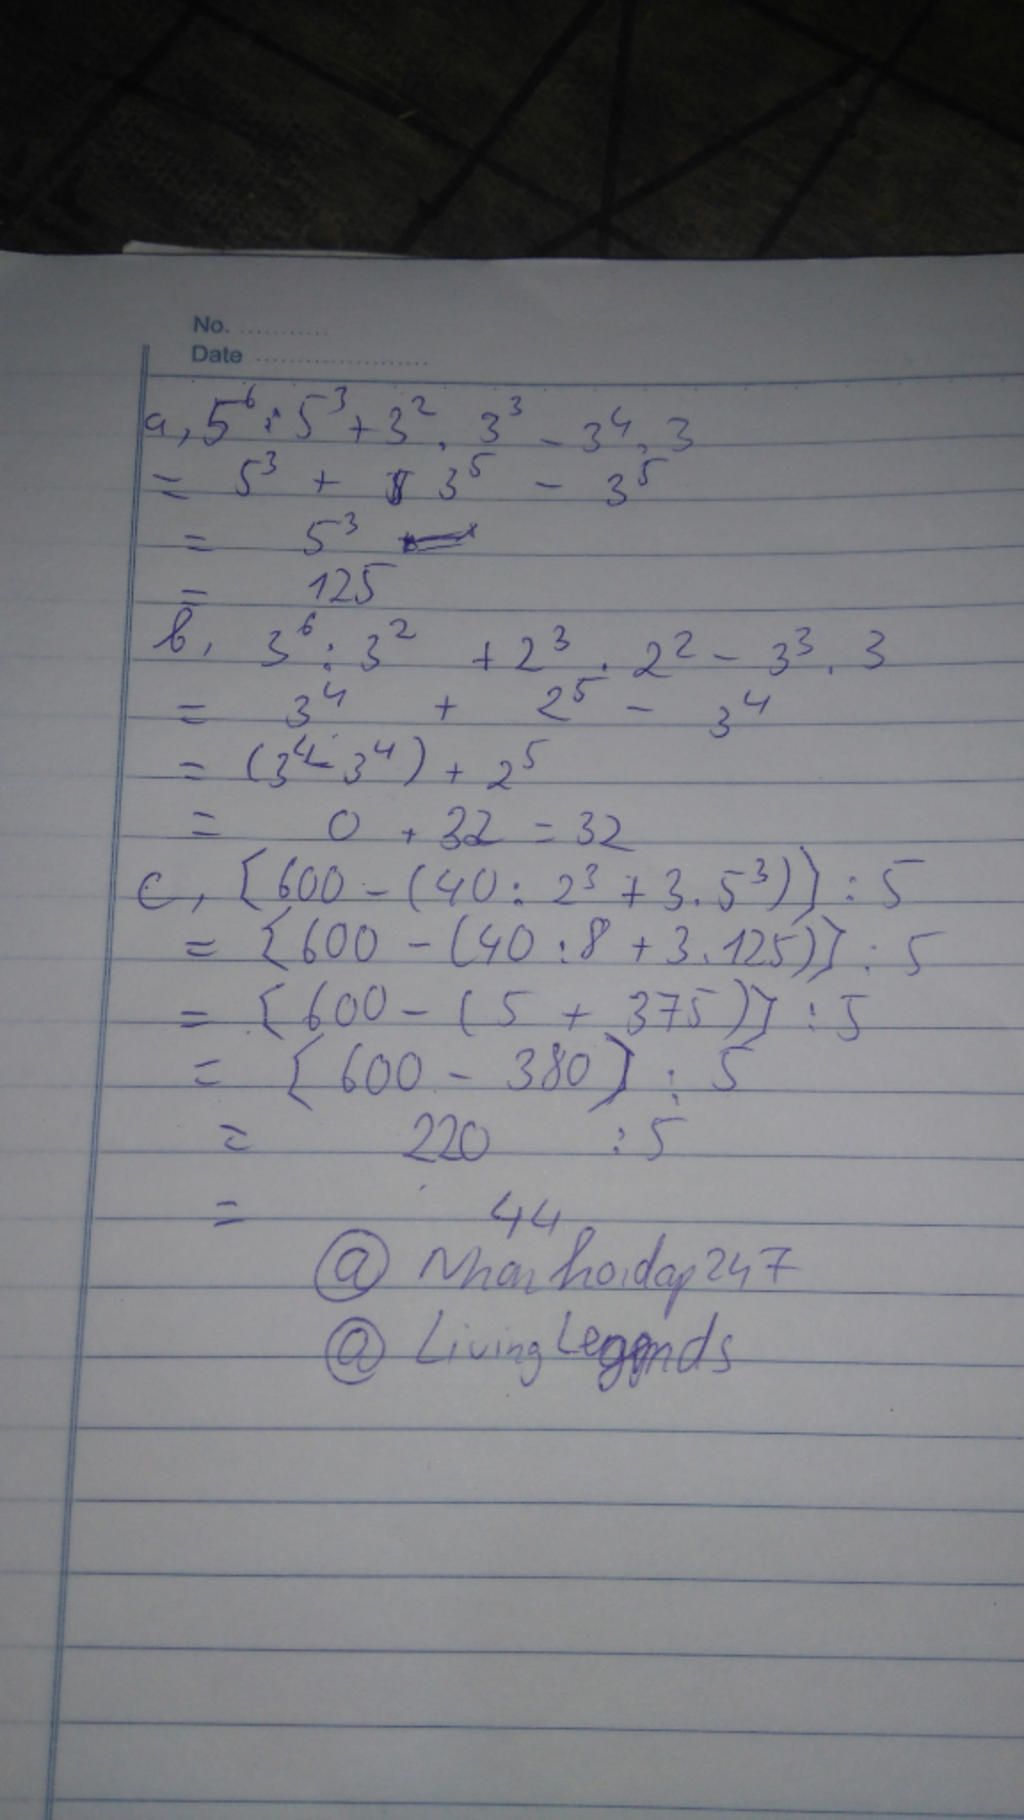 No. ...........
Date .....................
a, 5⁶ : 5³ + 3² . 3³ - 3⁴ . 3
= 5³ + 3⁵ - 3⁵
= 5³
= 125
b, 3⁶ : 3² + 2³ . 2² - 3³ . 3
= 3⁴ + 2⁵ - 3⁴
= (3⁴ - 3⁴) + 2⁵
= 0 + 32 = 32
c, [600 - (40 : 2³ + 3 . 5³)] : 5
= [600 - (40 : 8 + 3 . 125)] : 5
= [600 - (5 + 375)] : 5
= [600 - 380] : 5
= 220 : 5
= 44
@ hoidap247
@ LivingLegends